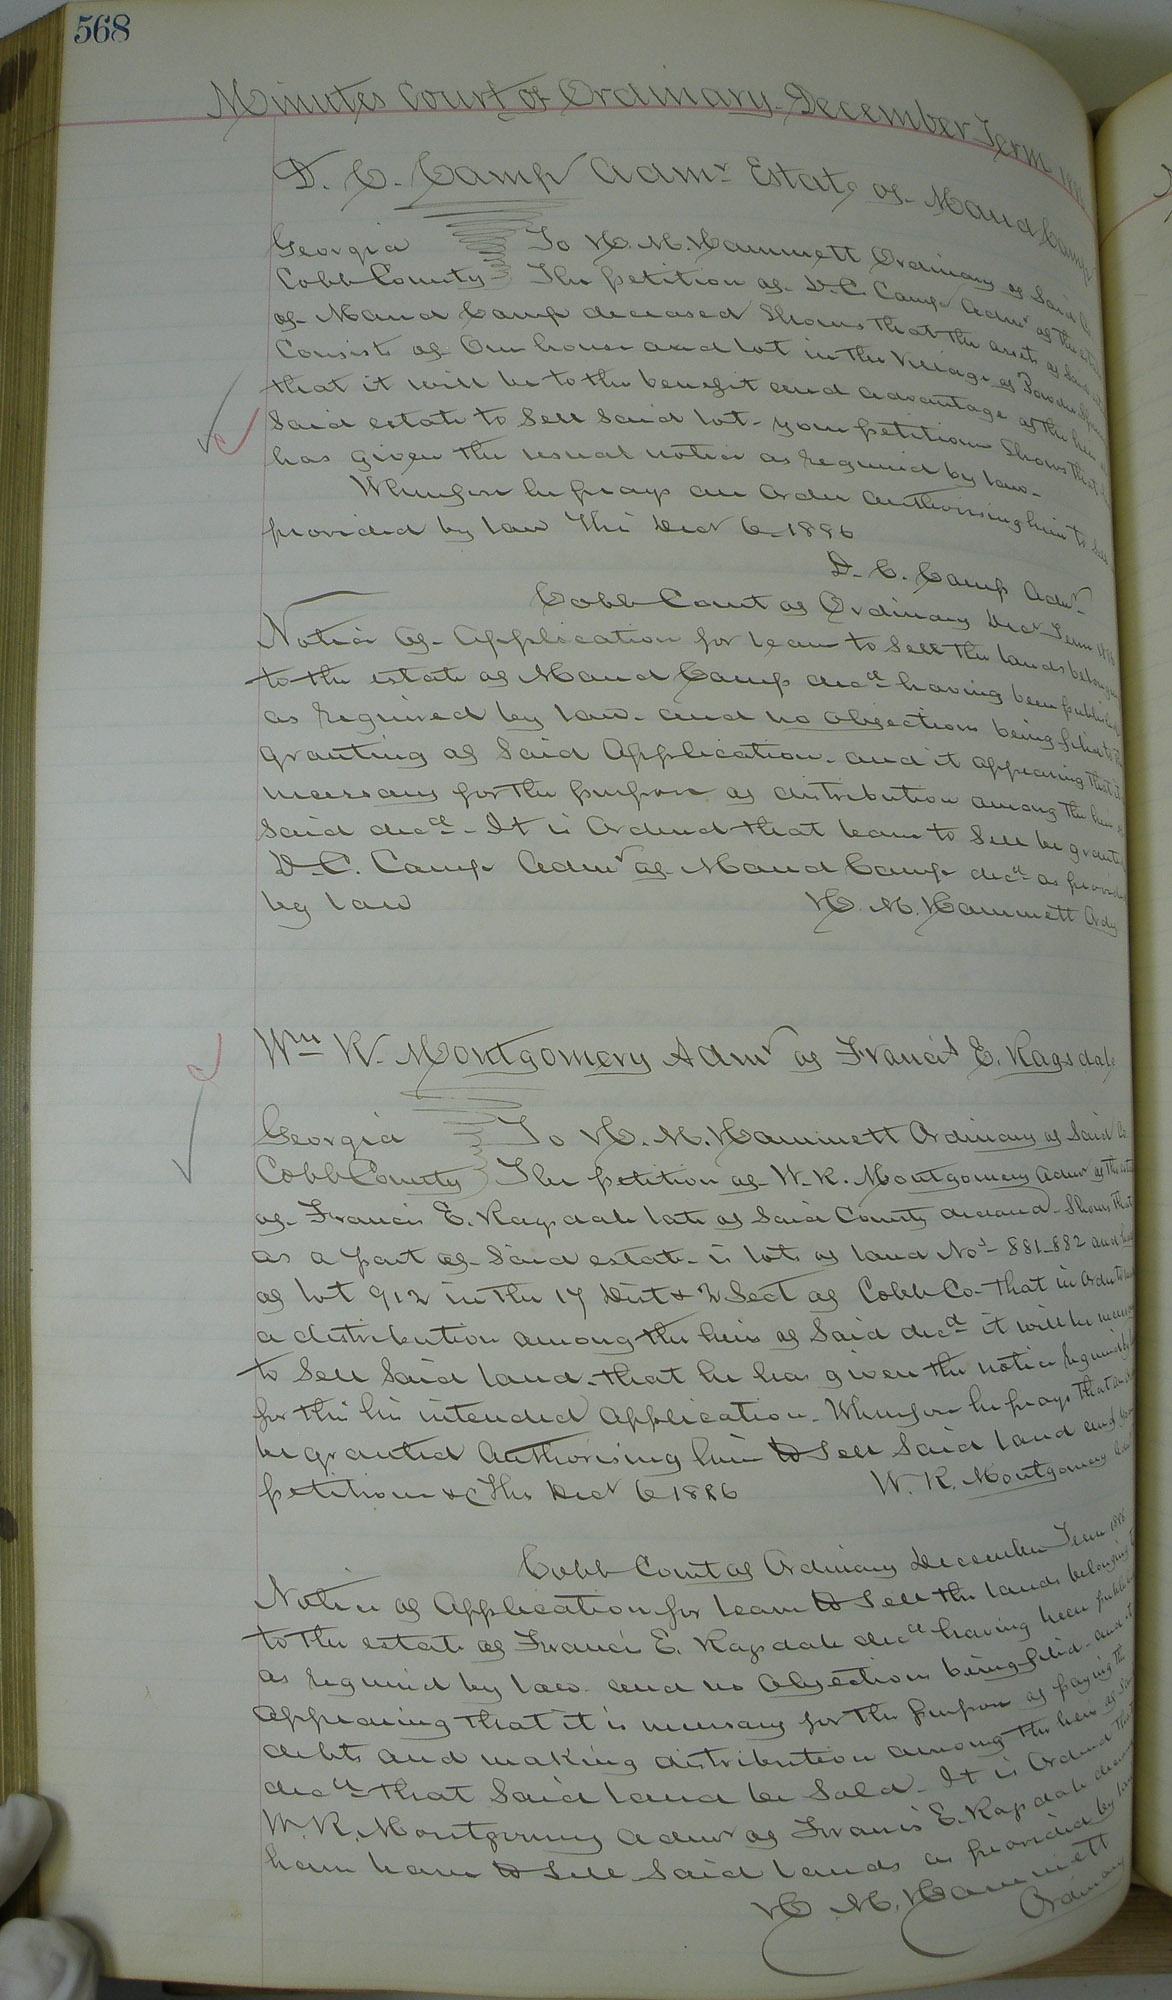 568
Minutes Court of Ordinary December Term 188
D. C. Camp Admr Estate of Maud Camp
Georgia To H. M. Hammett Ordinary of Said Co
Cobb County The petition of D. C. Camp Admr of the estate
of Maud Camp deceased Shows that the assets of Said
Consists of One house and lot in the Village of Powder Springs
that it will be to the benefit and advantage of the heirs of
Said estate to Sell Said lot - your petitioner Shows that he
has given the usual notice as required by law -
Wherefore he prays an Order Authorising him to Sell
provided by law This Decr 6 - 1886
D. C. Camp Admr
Cobb Court of Ordinary Decr Term 1886
Notice of Application for leave to Sell the lands belonging
to the estate of Maud Camp decd having been published
as required by law - and no objections being filed to the
granting of Said Application - and it appearing that it is
necessary for the purpose of distribution among the heirs of
Said decd - It is Ordered that leave to Sell be granted
D. C. Camp Admr of Maud Camp decd as provided
by law H. M. Hammett Ordy
Wm R. Montgomery Admr of Francis E. Ragsdale
Georgia To H. M. Hammett Ordinary of Said Co
Cobb County The petition of W. R. Montgomery Admr of the estate
of Francis E. Ragsdale late of Said County deceased - Shows that
as a part of Said estate is lots of land Nos - 881 - 882 and
of lot 912 in the 17 Dist & 2 Sect of Cobb Co - that in Order to
a distribution among the heirs of Said decd it will be necessary
to Sell Said land - that he has given the notice required by
for this his intended Application - Wherefore he prays that an
be granted Authorising him to Sell Said land and your
petitioner &c This Decr 6 1886 W. R. Montgomery
Cobb Court of Ordinary December Term 1886
Notice of Application for leave to Sell the lands belonging
to the estate of Francis E. Ragsdale decd having been published
as required by law and no Objections being filed - and it
Appearing that it is necessary for the purpose of paying the
debts and making distribution among the heirs of Said
decd that Said land be Sold - It is Ordered that
W. R. Montgomery Admr of Francis E. Ragsdale deceased
have leave to Sell Said lands as provided by law
H. M. Hammett
Ordinary